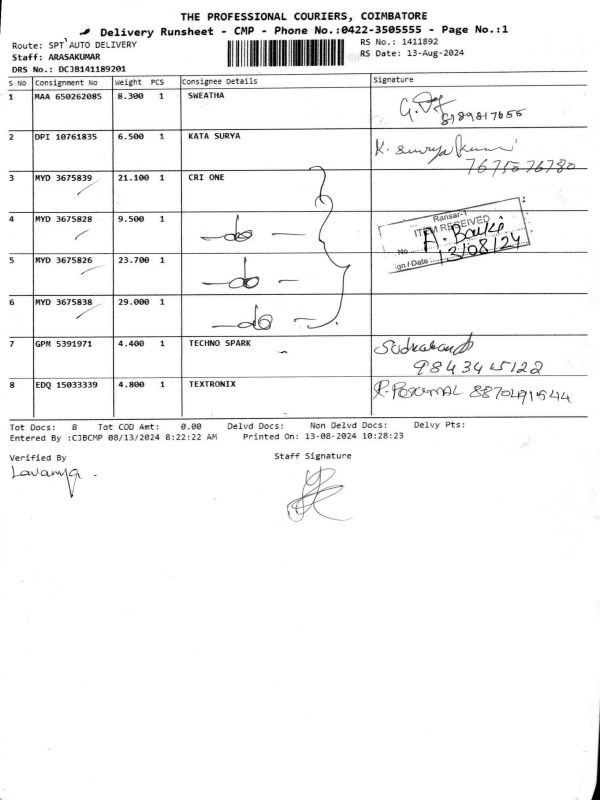 THE PROFESSIONAL COURIERS, COIMBATORE
Delivery Runsheet - CMP - Phone No.:0422-3505555 - Page No.:1
Route: SPT AUTO DELIVERY RS No.: 1411892
Staff: ARASAKUMAR RS Date: 13-Aug-2024
DRS No.: DCJB141189201
S No Consignment No Weight PCS Consignee Details Signature
1 MAA 650262085 8.300 1 SWEATHA
2 DPI 10761835 6.500 1 KATA SURYA K. Surya
7675076780
3 MYD 3675839 21.100 1 CRI ONE
4 MYD 3675828 9.500 1 -do-
ITEM RECEIVED
No
Sign/Date 13/08/24
5 MYD 3675826 23.700 1 -do-
6 MYD 3675838 29.000 1 -do-
7 GPM 5391971 4.400 1 TECHNO SPARK
9843445122
8 EDQ 15033339 4.800 1 TEXTRONIX
Tot Docs: 8 Tot COD Amt: 0.00 Delvd Docs: Non Delvd Docs: Delvy Pts:
Entered By :CJBCMP 08/13/2024 8:22:22 AM Printed On: 13-08-2024 10:28:23
Verified By Staff Signature
Lavanya